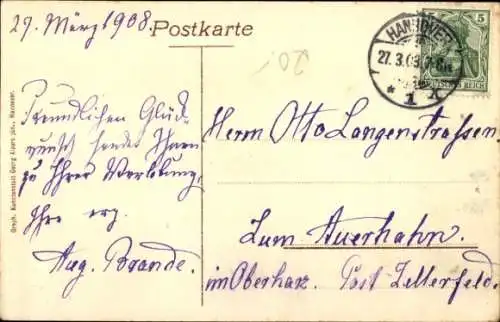 27. März 1908.
Postkarte
20.-
HANNOVER
27.3.08.
* 1 X
5
DEUTSCHES REICH
Freundlichen Glück-
wunsch sendet Ihnen
zu Ihrer Verlobung.
Ihr erg.
Aug. Brande.
Herrn Otto Langenstrassen.
Zum Auerhahn.
im Oberharz. Post Zellerfeld.
Graph. Kunstanstalt Georg Alpers jun., Hannover.